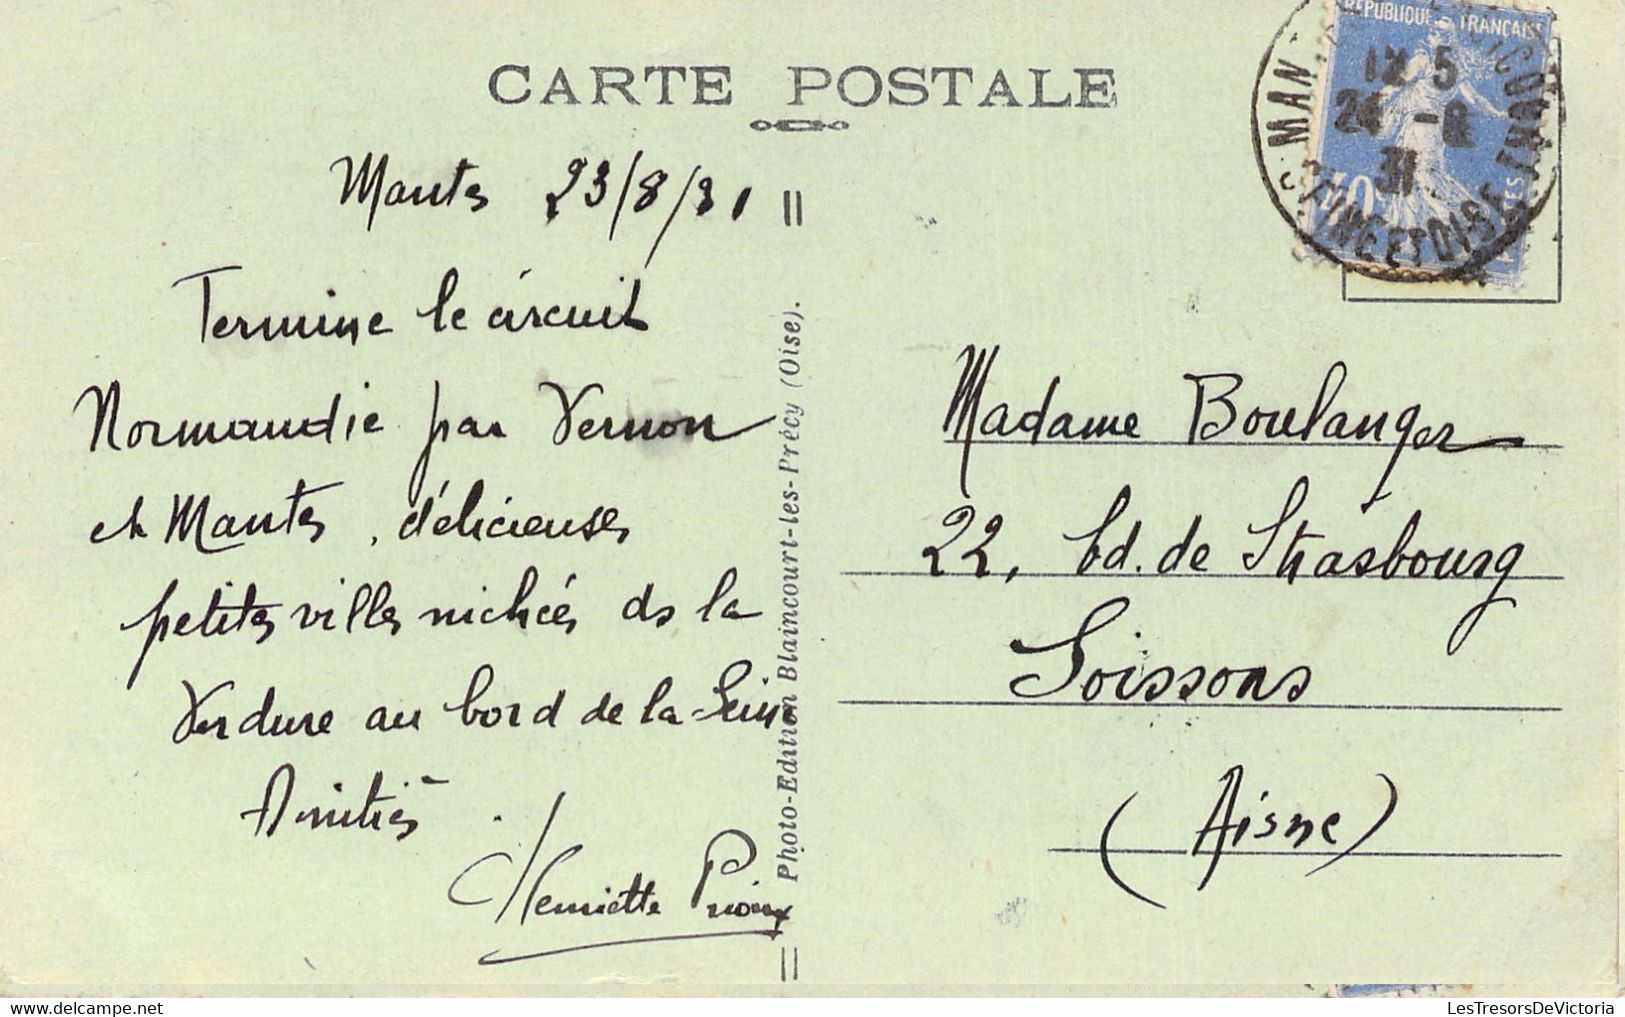 CARTE POSTALE
Mantes 23/8/31
Termine le circuit
Normandie par Vernon
et Mantes, délicieuses
petites villes nichées ds la
Verdure au bord de la Seine
Amitiés.
Henriette Prioux
Photo-Edition Blaincourt-les-Précy (Oise).
REPUBLIQUE FRANÇAISE
POSTES
MAN
SEINE ET OISE
5
24 -8
31
Madame Boulanger
22, bd. de Strasbourg
Soissons
(Aisne)
LesTresorsDeVictoria